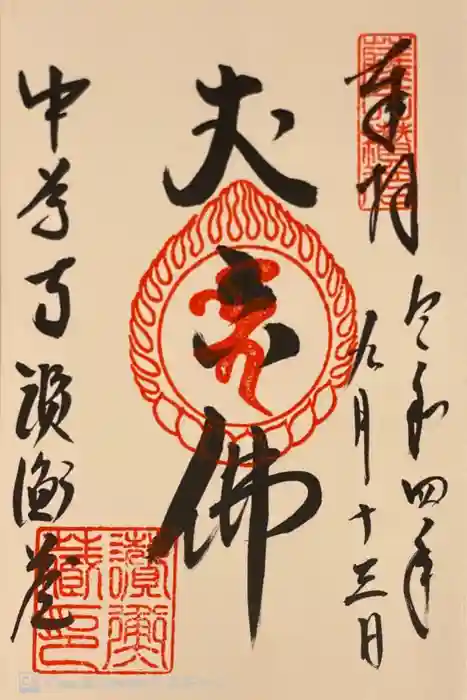 奉拝
令和四年
九月十三日
丈六佛
中尊寺 讃衡蔵
讃衡蔵印